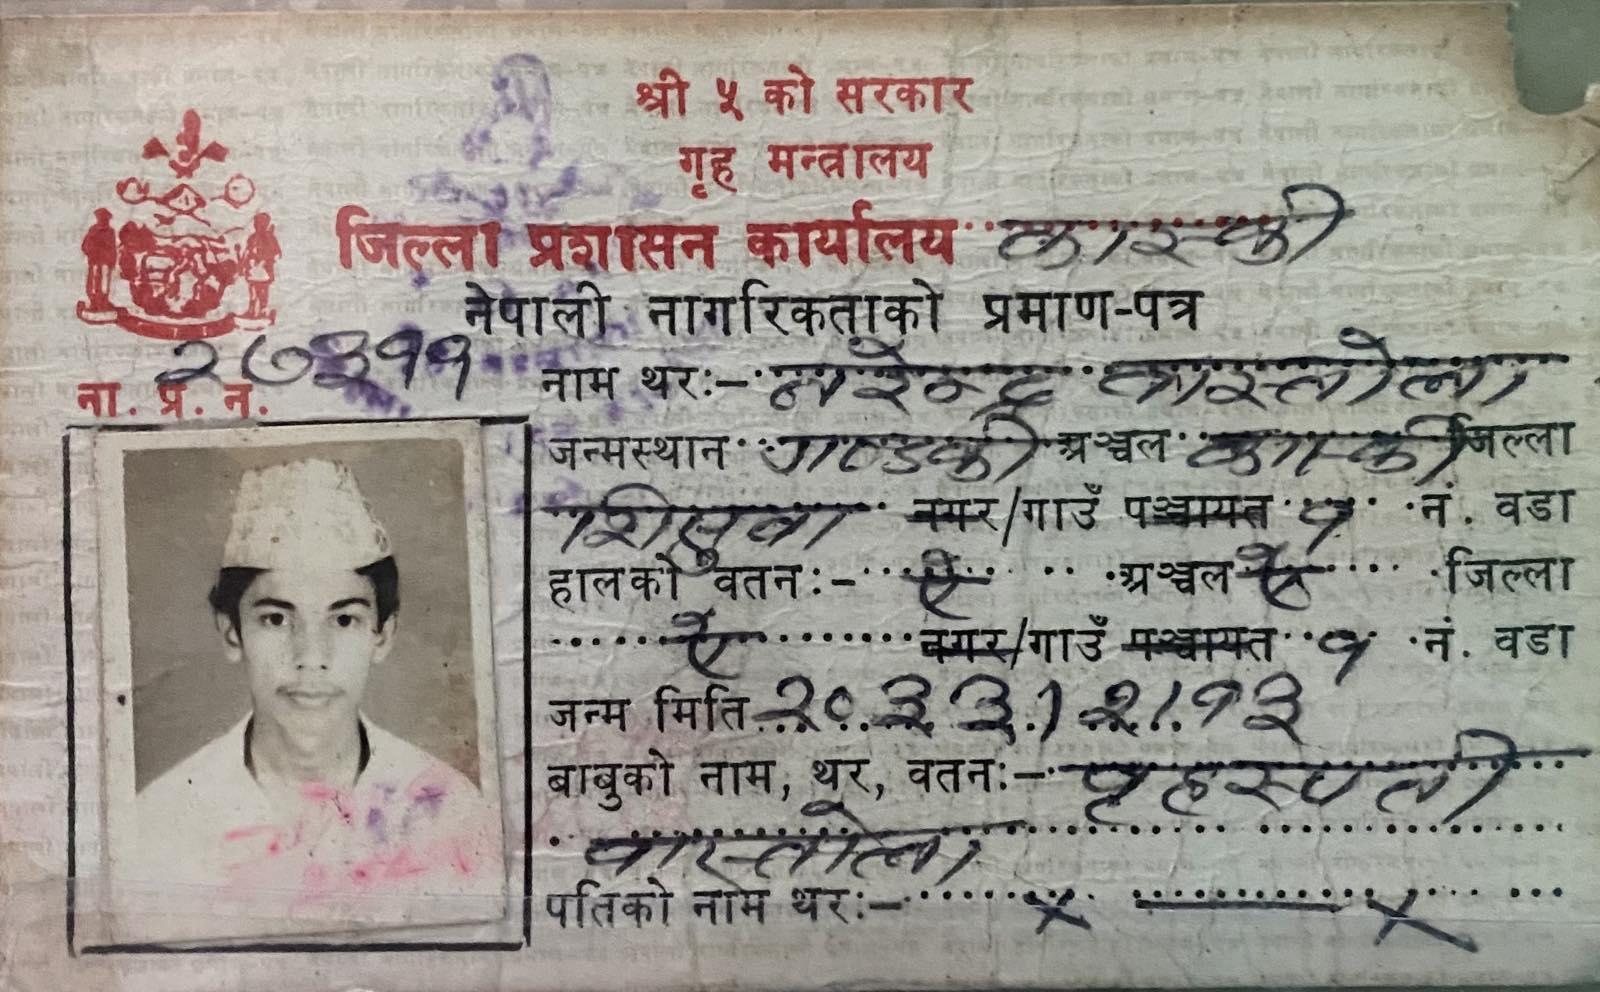 श्री ५ को सरकार
गृह मन्त्रालय
जिल्ला प्रशासन कार्यालय कास्की
नेपाली नागरिकताको प्रमाण-पत्र
ना. प्र. न. २७३११
नाम थर:- नरेन्द्र वास्तोला
जन्मस्थान गण्डकी अञ्चल कास्की जिल्ला
शिसुवा नगर/गाउँ पञ्चायत १ नं. वडा
हालको वतन:- ऐ अञ्चल ऐ जिल्ला
ऐ नगर/गाउँ पञ्चायत १ नं. वडा
जन्म मिति २०३३।२।१३
बाबुको नाम, थर, वतन:- बृहस्पती
वास्तोला
पतिको नाम थर:- × ——— ×